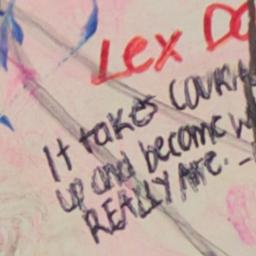 Lex DO
It takes coura
up and become w
REALLY ARE. -